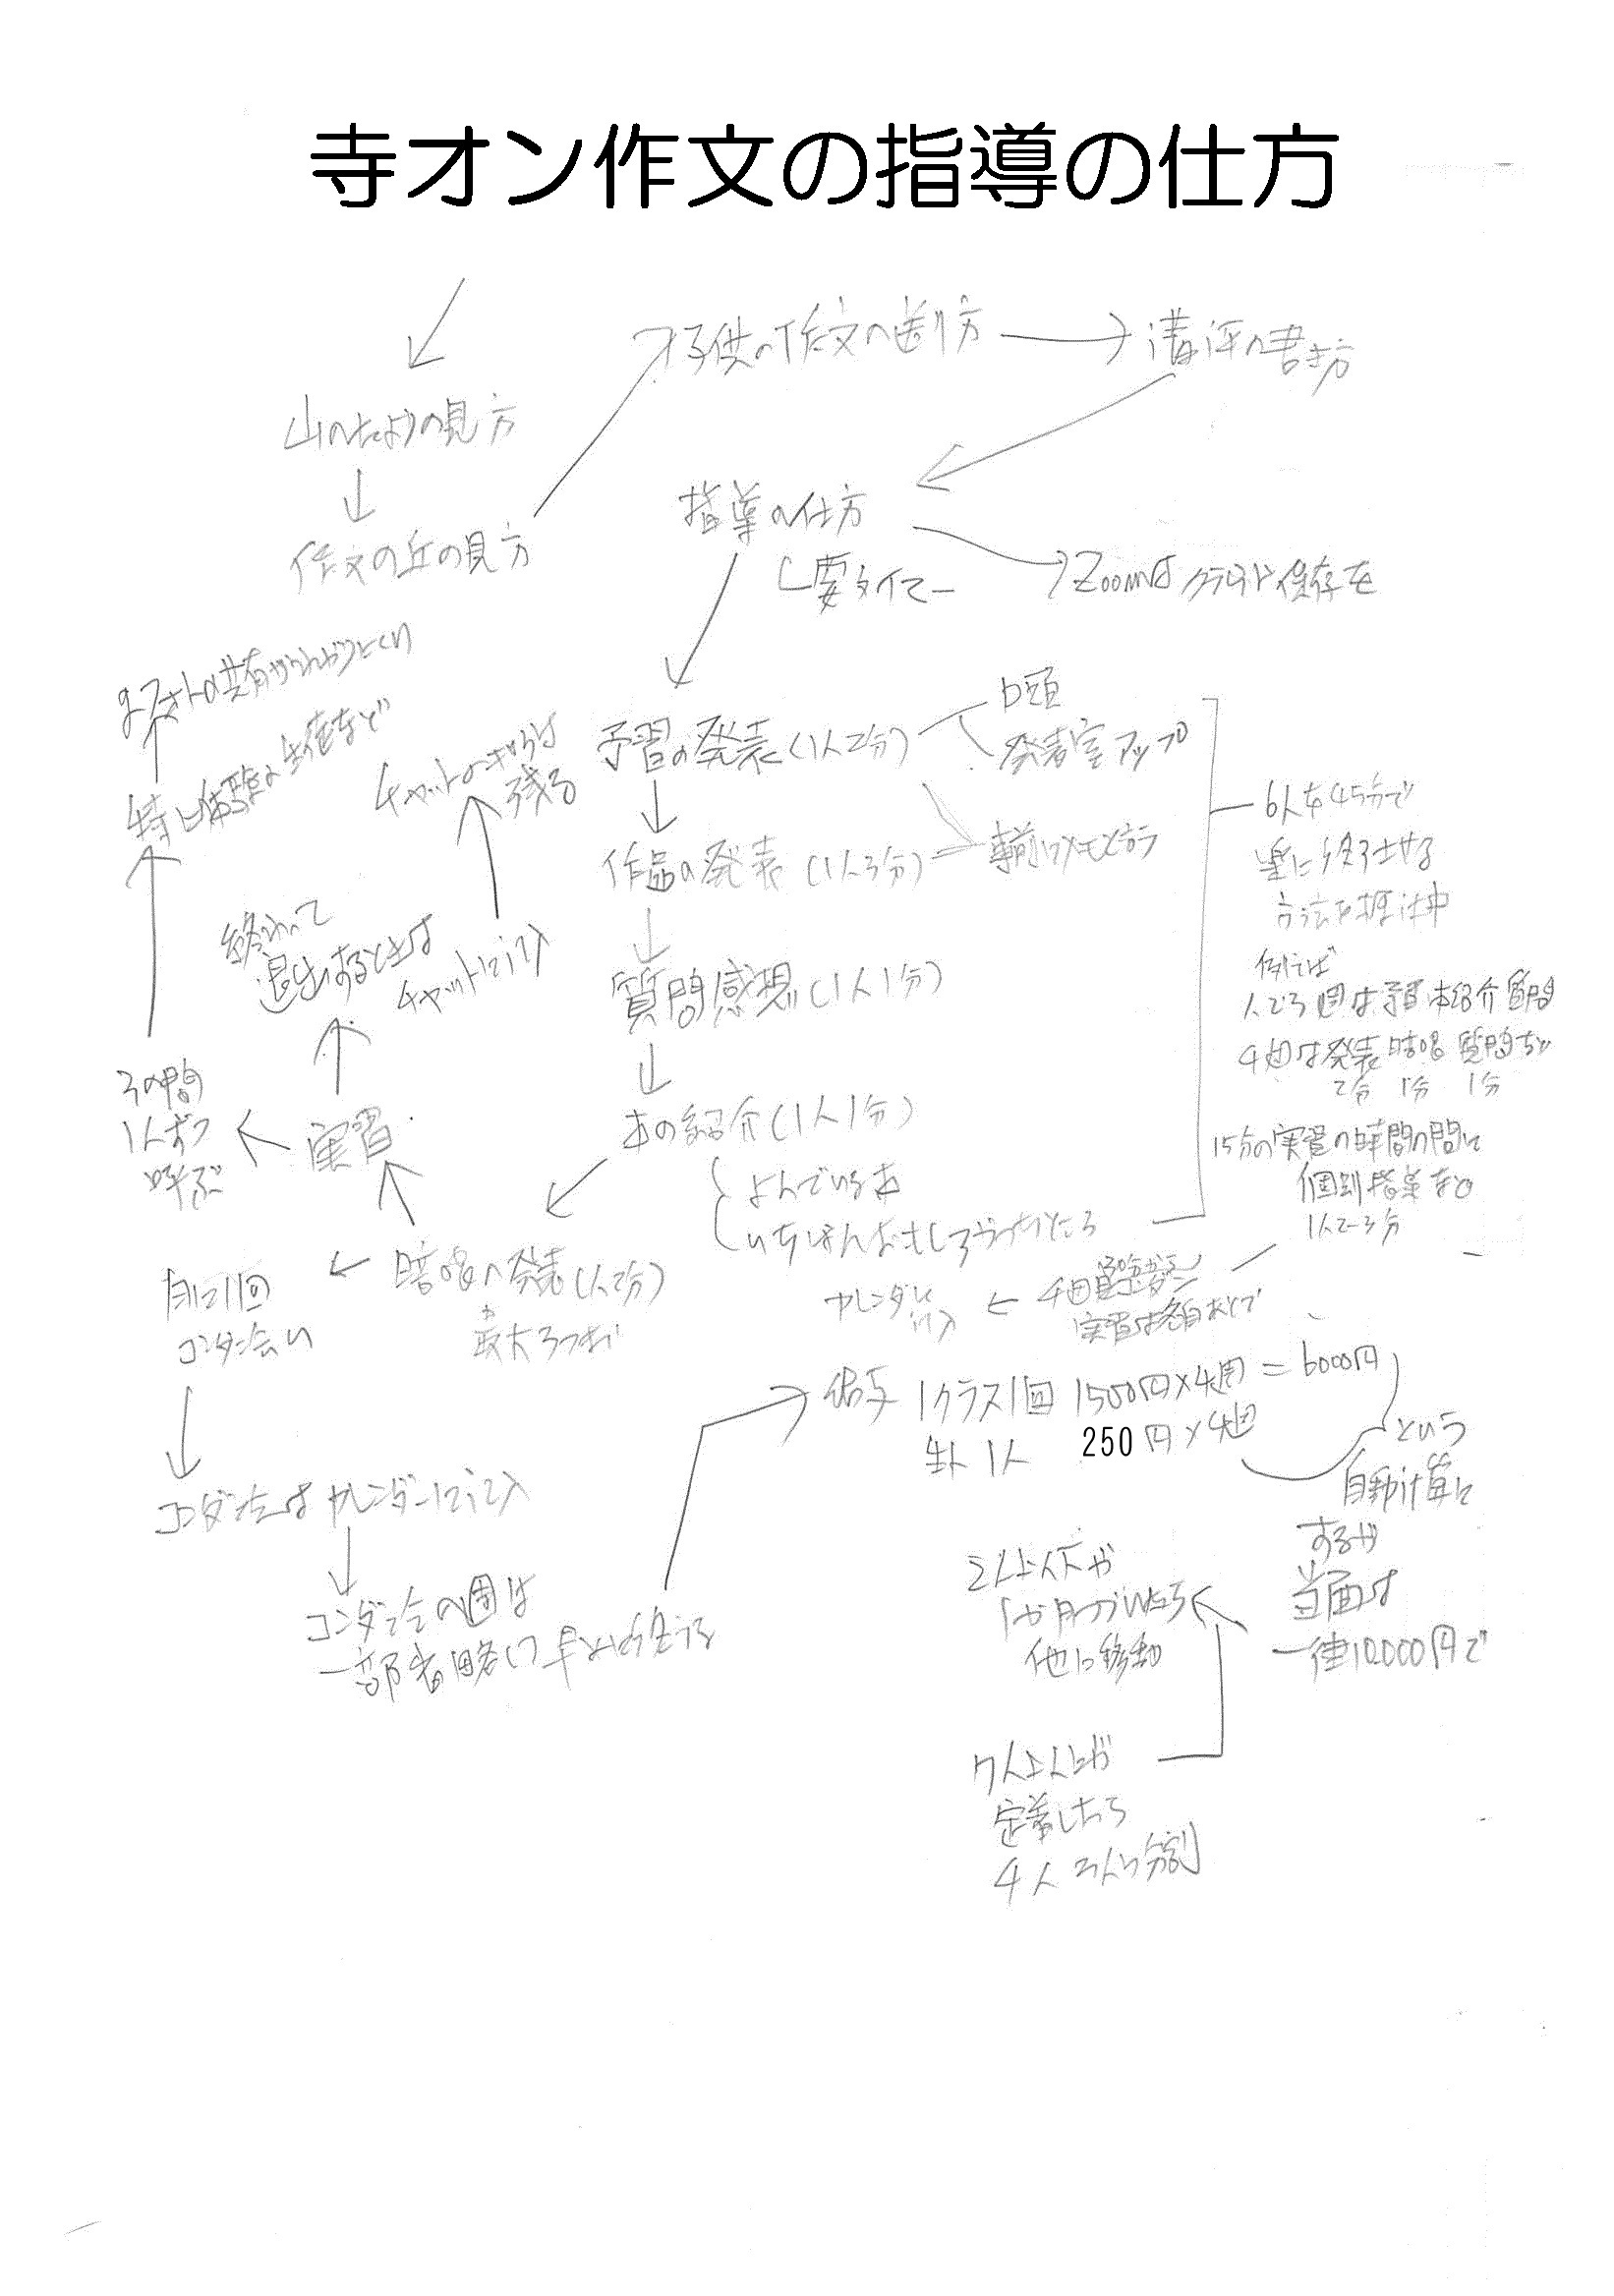 寺オン作文の指導の仕方
山のたよりの見方
作文の丘の見方
子供の作文の送り方
講評の書き方
指導の仕方
要タイマー
Zoomはクラウド保存を
予習の発表(1人2分)
口頭
発表室アップ
作品の発表(1人3分)
事前に
質問感想(1人1分)
本の紹介(1人1分)
よんでいる本
いちばんおもしろかったところ
暗唱の発表(1人2分)
最大3つまで
実習
終わって
退出するときは
チャットに記入
チャットのきろくは
残る
その間
1人ずつ
呼ぶ
特に体験の生徒など
月に1回
コンダン会い
コンダン会はカレンダーに記入
コンダン会の週は
一部省略して早めに終える
6人を45分で
楽に終了させる
方法を検討中
例えば
1人で3週は予習 本紹介 質問
4週は発表 暗唱 質問など
2分 1分 1分
15分の実習の時間の間に
個別指導など
1人2~3分
30分から
4週目コンダン
実習は各自おとで
カレンダーに
記入
給与 1クラス1回 1500円×4週=6000円
生と1人 250円×4週
という
自動計算に
するが
当面は
一律10000円で
2人以下が
1か月つづいたら
他に移動
7人以上が
定着したら
4人 3人に分割